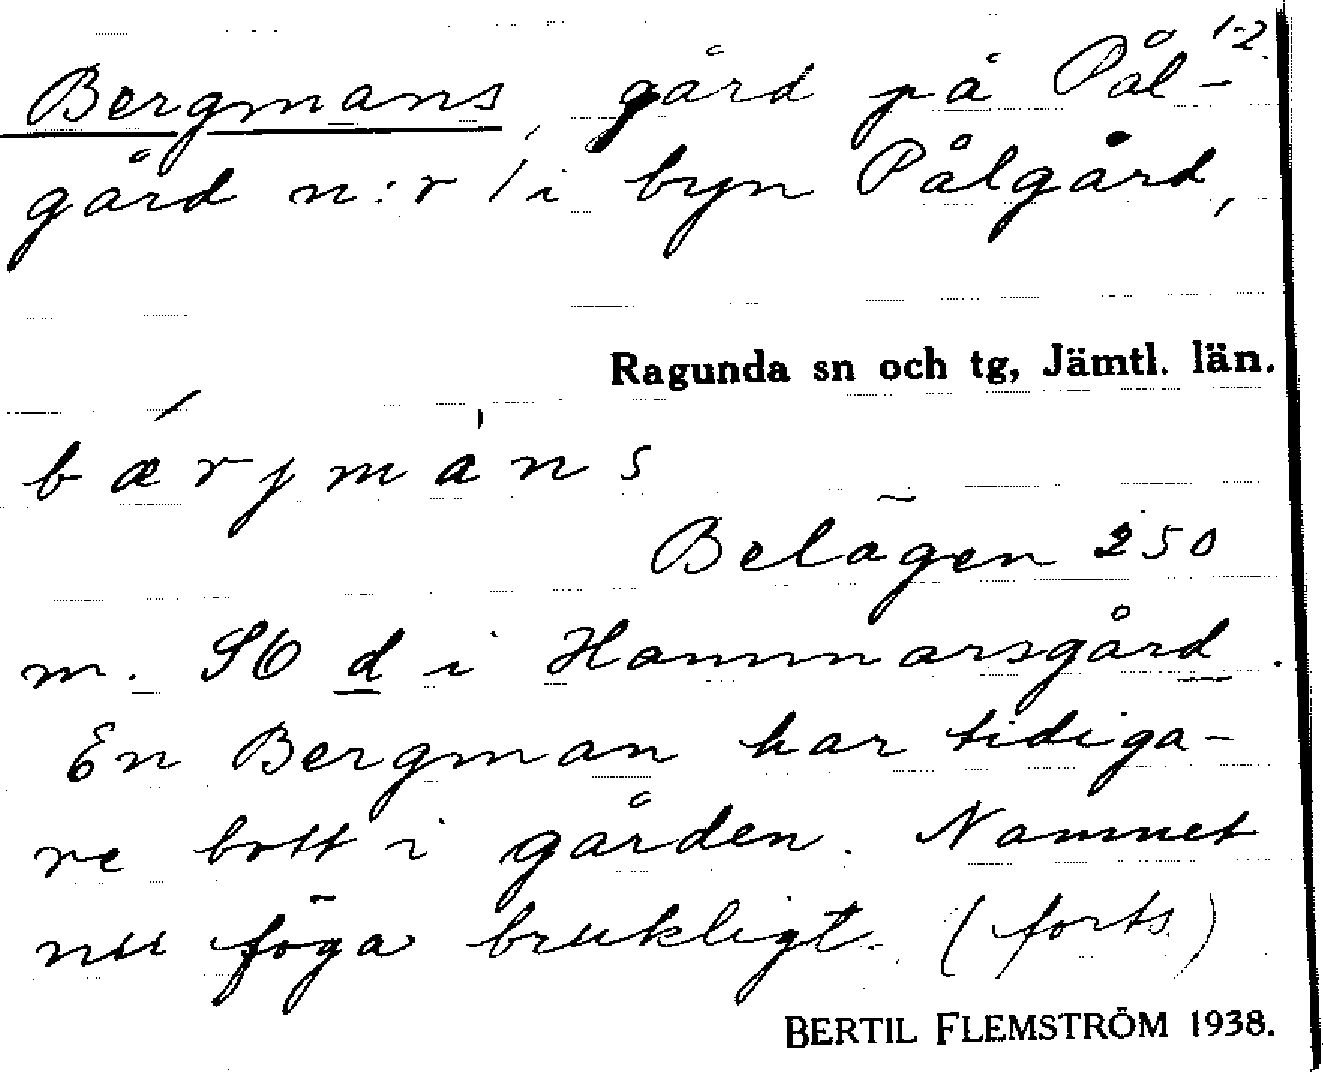 1-2.
Bergmans, gård på Pål-
gård n:r 1 i byn Pålgård,
Ragunda sn och tg, Jämtl. län.
bærjmàns
Belägen 250
m. SO d i Hammarsgård.
En Bergman har tidiga-
re bott i gården. Namnet
nu föga brukligt. (forts.)
BERTIL FLEMSTRÖM 1938.